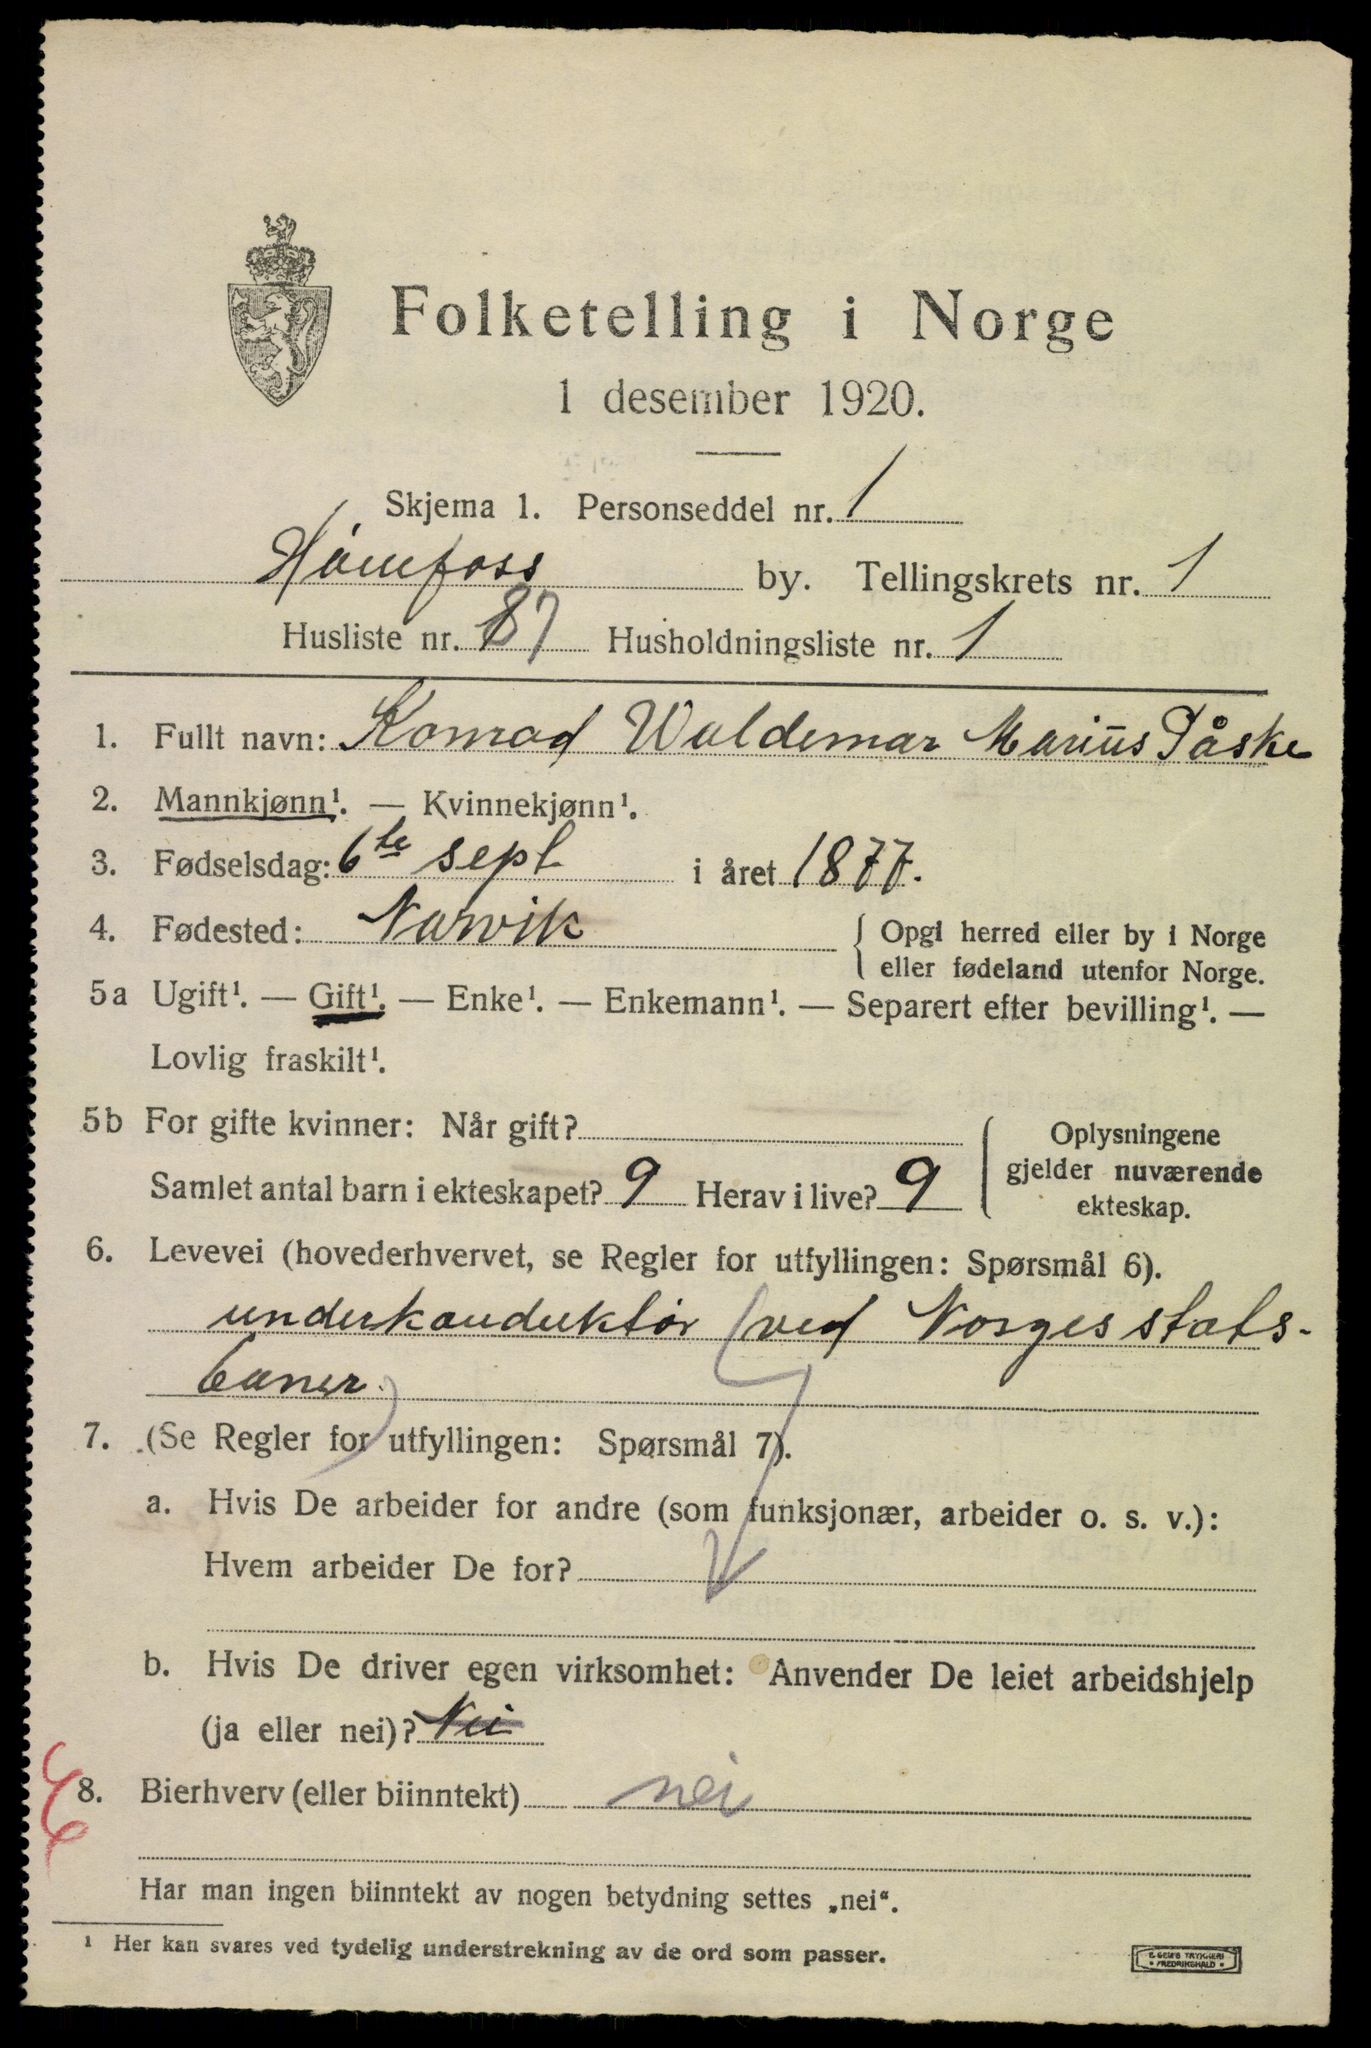 Folketelling i Norge
1 desember 1920.
Skjema 1. Personseddel nr. 1
Hønefoss by. Tellingskrets nr. 1
Husliste nr. 87 Husholdningsliste nr. 1
1. Fullt navn: Konrad Waldemar Marius Påske
2. Mannkjønn¹. — Kvinnekjønn¹.
3. Fødselsdag: 6te sept i året 1877.
4. Fødested: Narvik { Opgi herred eller by i Norge
eller fødeland utenfor Norge.
5a Ugift¹. — Gift¹. — Enke¹. — Enkemann¹. — Separert efter bevilling¹. —
Lovlig fraskilt¹.
5b For gifte kvinner: Når gift?
Samlet antal barn i ekteskapet? 9 Herav i live? 9
Oplysningene
gjelder nuværende
ekteskap.
6. Levevei (hovederhvervet, se Regler for utfyllingen: Spørsmål 6).
underkonduktør (ved Norges stats-
baner)
7. (Se Regler for utfyllingen: Spørsmål 7).
a. Hvis De arbeider for andre (som funksjonær, arbeider o. s. v.):
Hvem arbeider De for?
b. Hvis De driver egen virksomhet: Anvender De leiet arbeidshjelp
(ja eller nei)? Nei
8. Bierhverv (eller biinntekt) nei
Har man ingen biinntekt av nogen betydning settes „nei“.
¹ Her kan svares ved tydelig understrekning av de ord som passer.
E. SEM'S TRYKKERI
• FREDRIKSHALD •